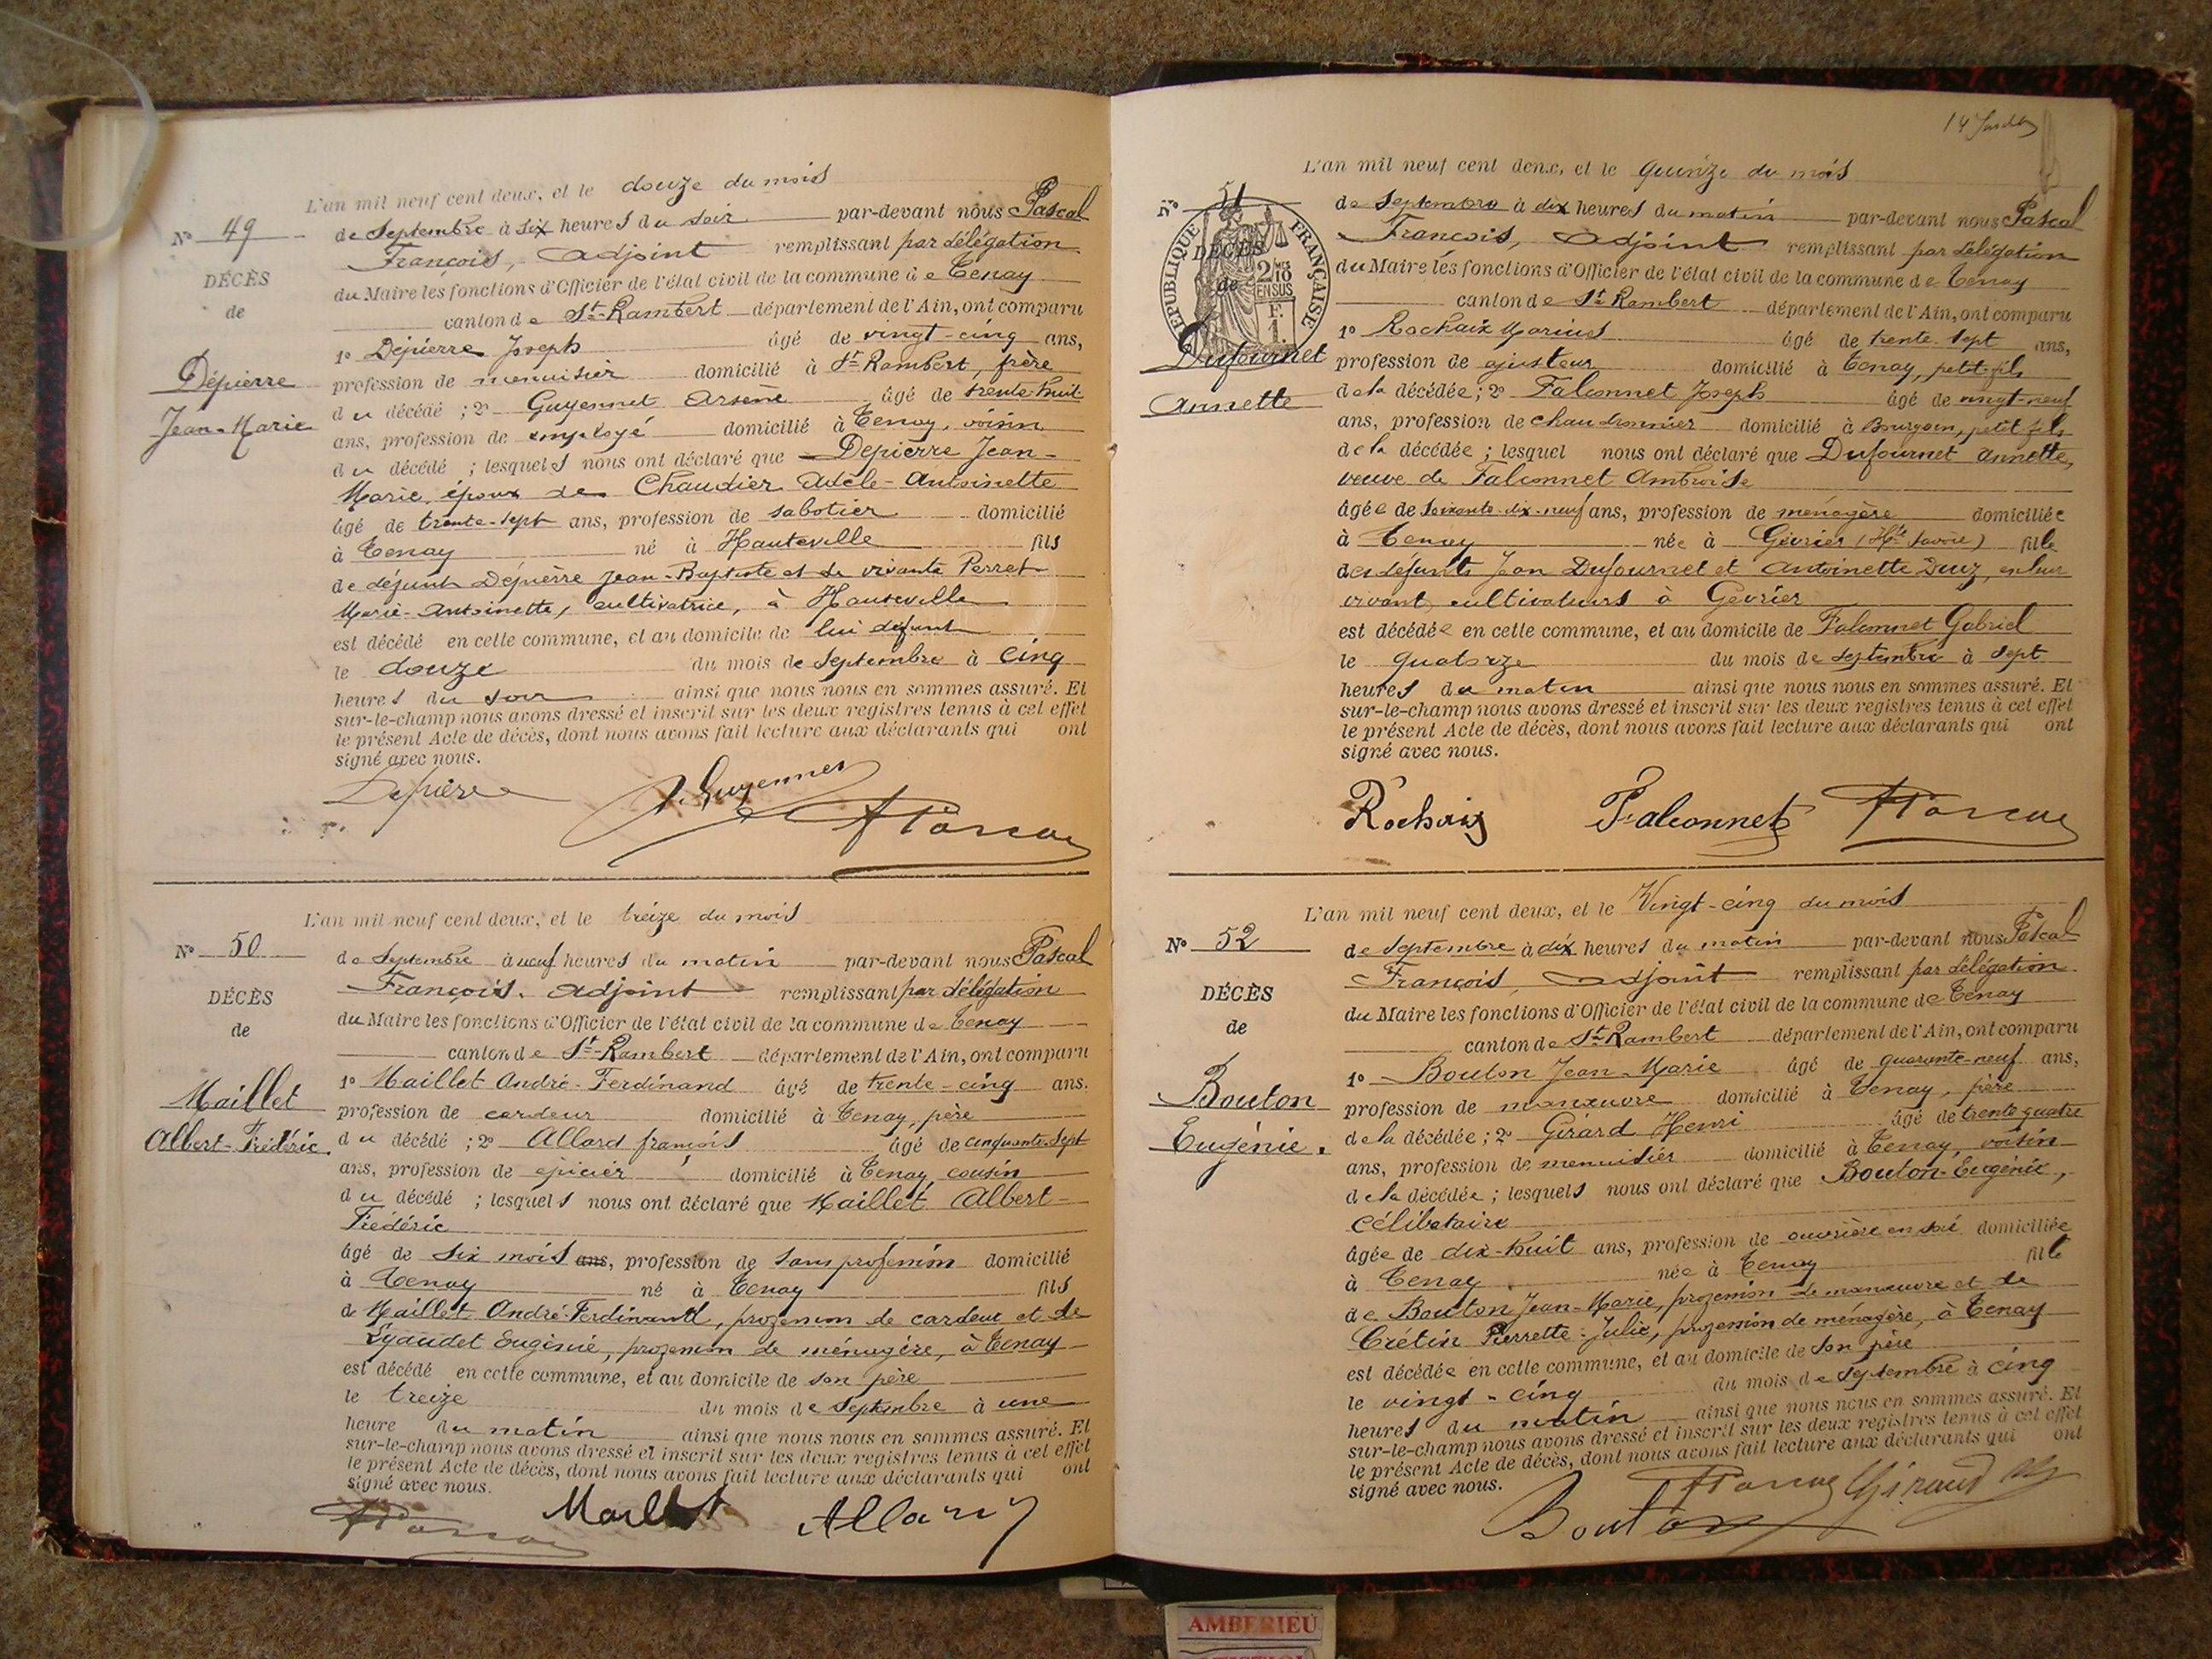 L'an mil neuf cent deux, et le douze du mois
Nº 49
de Septembre à six heures du soir par-devant nous Pascal
François, adjoint remplissant par délégation
DÉCÈS
du Maire les fonctions d'Officier de l'état civil de la commune de Tenay
de
canton de St-Rambert département de l'Ain, ont comparu
1º Dépierre Joseph âgé de vingt-cinq ans,
Dépierre
profession de menuisier domicilié à St-Rambert, frère
Jean-Marie
du décédé ; 2º Guyennet Arsène âgé de trente-huit
ans, profession de employé domicilié à Tenay, voisin
du décédé ; lesquels nous ont déclaré que Depierre Jean-
Marie, époux de Chaudier Adèle-Antoinette
âgé de trente-sept ans, profession de sabotier domicilié
à Tenay né à Hauteville fils
de défunt Dépierre Jean-Baptiste et de vivante Perret
Marie-Antoinette, cultivatrice, à Hauteville
est décédé en cette commune, et au domicile de lui défunt
le douze du mois de Septembre à cinq
heures du soir ainsi que nous nous en sommes assuré. Et
sur-le-champ nous avons dressé et inscrit sur les deux registres tenus à cet effet
le présent Acte de décès, dont nous avons fait lecture aux déclarants qui ont
signé avec nous.
Depierre A. Guyennet
F Pascal
L'an mil neuf cent deux, et le treize du mois
Nº 50
de Septembre à neuf heures du matin par-devant nous Pascal
François, adjoint remplissant par délégation
DÉCÈS
du Maire les fonctions d'Officier de l'état civil de la commune de Tenay
de
canton de St-Rambert département de l'Ain, ont comparu
1º Maillet André-Ferdinand âgé de trente-cinq ans.
Maillet
profession de cardeur domicilié à Tenay, père
Albert-Frédéric.
du décédé ; 2º Allard françois âgé de cinquante-sept
ans, profession de épicier domicilié à Tenay, cousin
du décédé ; lesquels nous ont déclaré que Maillet Albert-
Frédéric
âgé de six mois ans, profession de sans profession domicilié
à Tenay né à Tenay fils
de Maillet André-Ferdinand, profession de cardeur et de
Eugénie, profession de ménagère, à Tenay
est décédé en cette commune, et au domicile de son père
le treize du mois de Septembre à une
heure du matin ainsi que nous nous en sommes assuré. Et
sur-le-champ nous avons dressé et inscrit sur les deux registres tenus à cet effet
le présent Acte de décès, dont nous avons fait lecture aux déclarants qui ont
signé avec nous.
F Pascal Maillet Allard
L'an mil neuf cent deux, et le quinze du mois
Nº 51
de Septembre à dix heures du matin par-devant nous Pascal
François, adjoint remplissant par délégation
RÉPUBLIQUE FRANÇAISE
DÉCÈS
2/10 EN SUS
F. 1.
du Maire les fonctions d'Officier de l'état civil de la commune de Tenay
de
canton de St-Rambert département de l'Ain, ont comparu
1º Rochaix Marius âgé de trente-sept ans,
Dufournet
profession de ajusteur domicilié à Tenay, petit-fils
Annette
de la décédée ; 2º Falconnet Joseph âgé de vingt-neuf
ans, profession de chaudronnier domicilié à Bourgoin, petit-fils
de la décédée ; lesquel nous ont déclaré que Dufournet Annette,
veuve de Falconnet Ambroise
âgée de soixante-dix-neuf ans, profession de ménagère domiciliée
à Tenay née à Gévrier (Hte Savoie) fille
des défunts Jean Dufournet et Antoinette Duez, en leur
vivant cultivateurs à Gévrier
est décédée en cette commune, et au domicile de Falconnet Gabriel
le quatorze du mois de septembre à sept
heures du matin ainsi que nous nous en sommes assuré. Et
sur-le-champ nous avons dressé et inscrit sur les deux registres tenus à cet effet
le présent Acte de décès, dont nous avons fait lecture aux déclarants qui ont
signé avec nous.
Rochaix Falconnet F Pascal
L'an mil neuf cent deux, et le Vingt-cinq du mois
Nº 52
de Septembre à dix heures du matin par-devant nous Pascal
François, adjoint remplissant par délégation
DÉCÈS
du Maire les fonctions d'Officier de l'état civil de la commune de Tenay
de
canton de St-Rambert département de l'Ain, ont comparu
1º Bouton Jean-Marie âgé de quarante-neuf ans,
Bouton
profession de manœuvre domicilié à Tenay, père
Eugénie.
de la décédée ; 2º Girard Henri âgé de trente quatre
ans, profession de menuisier domicilié à Tenay, voisin
de la décédée ; lesquels nous ont déclaré que Bouton-Eugénie,
célibataire
âgée de dix-huit ans, profession de ouvrière en soie domiciliée
à Tenay née à Tenay fille
de Bouton Jean-Marie, profession de manœuvre et de
Crétin Pierrette-Julie, profession de ménagère, à Tenay
est décédée en cette commune, et au domicile de son père
le vingt-cinq du mois de Septembre à cinq
heures du matin ainsi que nous nous en sommes assuré. Et
sur-le-champ nous avons dressé et inscrit sur les deux registres tenus à cet effet
le présent Acte de décès, dont nous avons fait lecture aux déclarants qui ont
signé avec nous.
Bouton F Pascal Giraud
AMBERIEU